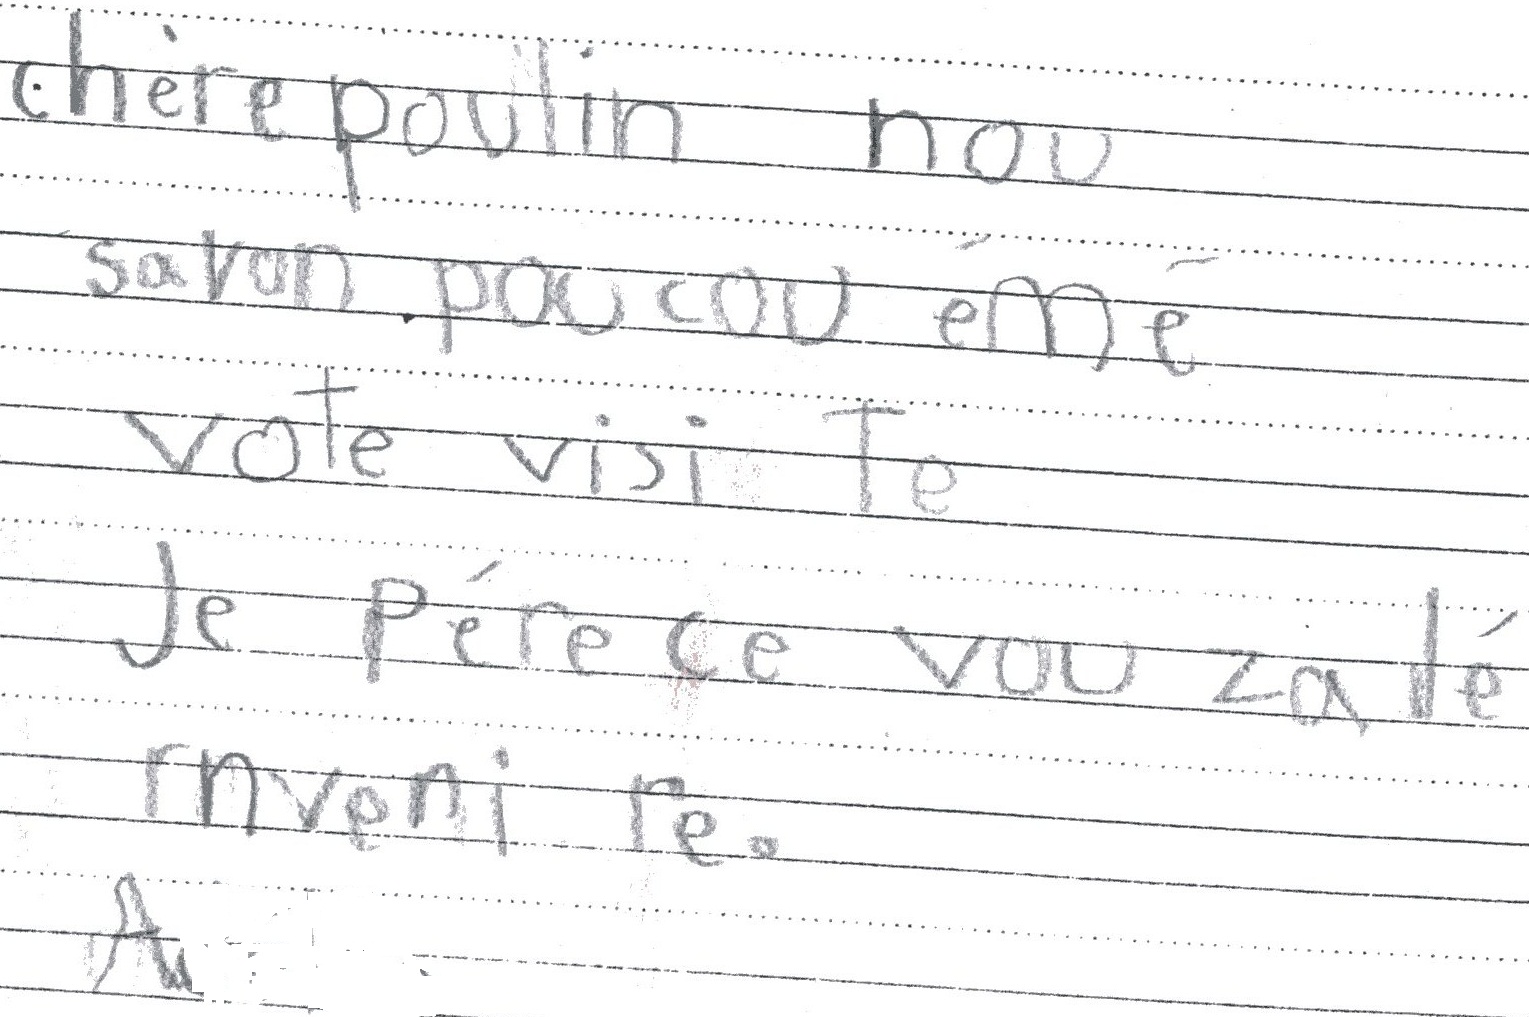 chère poulin nou
savon poucou émé
vote visi te
Je pérece vou zalé
rnveni re.
A